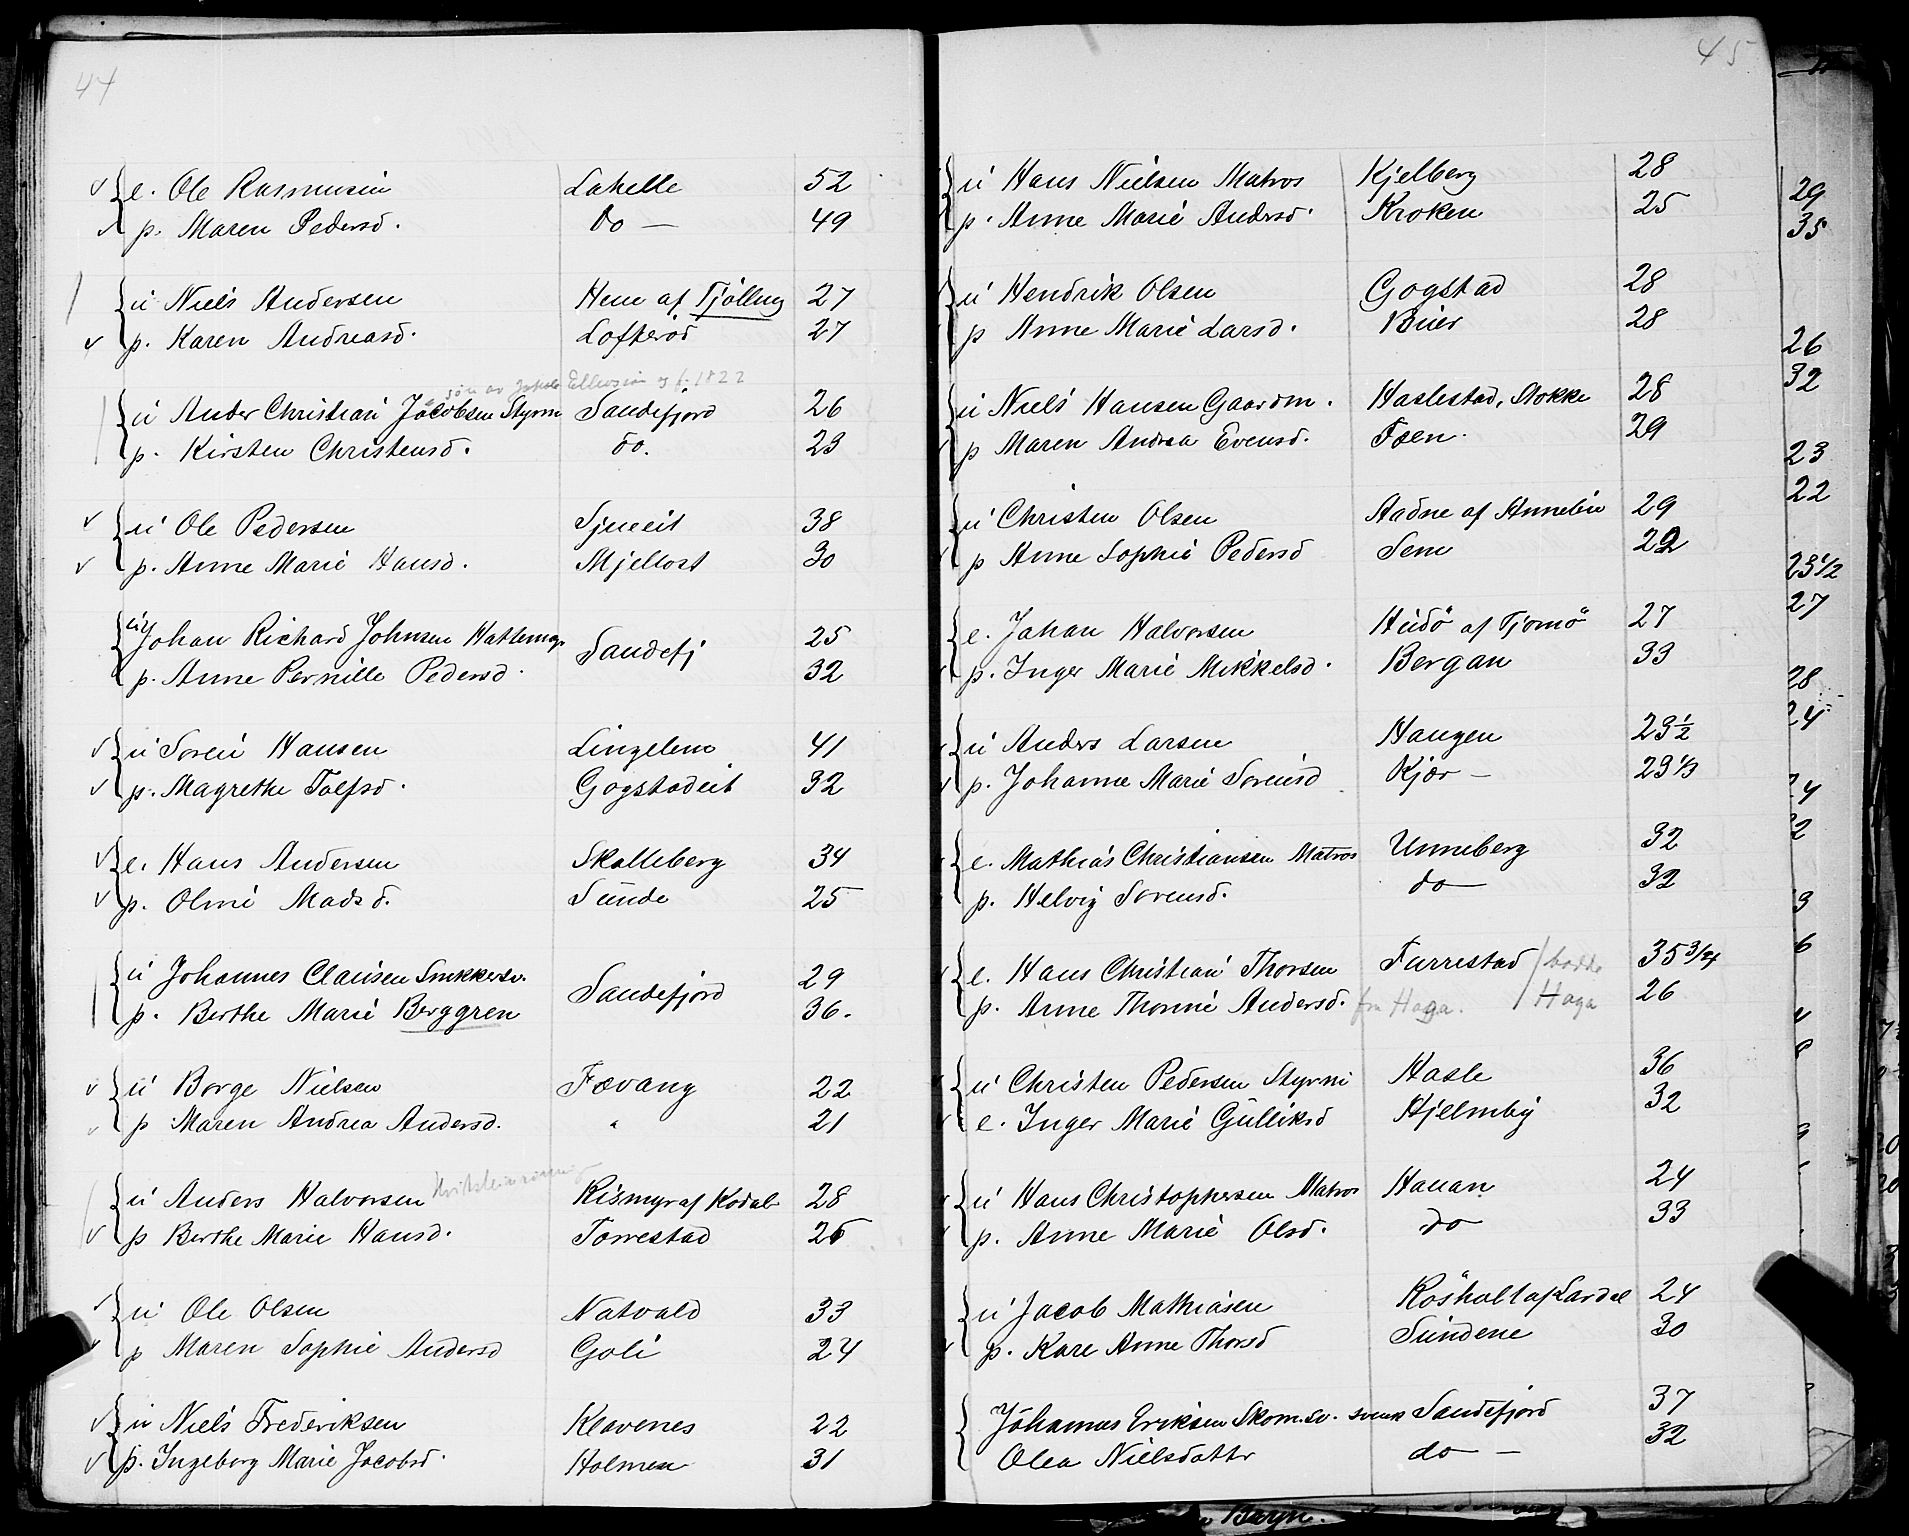 44
e. Ole Rasmusen Lahelle 52
p. Maren Pedersd. Do — 49
u Niels Andersen Hem af Tjølling 27
p. Karen Andreasd. Lofterød 27
søn av Jakob Ellevsøn og f. 1822
u Ander Christian Jacobsen Styrm Sandefjord 26
p. Kirsten Christensd. do. 23
u Ole Pedersen 38
p. Anne Marie Hansd. Mjellost 30
u Johan Richard Johnsen Hattemag. Sandefj 25
p. Anne Pernille Pedersd. 32
u Soren Hansen Lingelem 41
p. Magrethe Tolfsd. Gogstadeit 32
e. Hans Andersen Skalleberg 34
p. Oline Madsd. Sunde 25
u Johannes Clausen Snikkersv. Sandefjord 29
p. Berthe Marie Berggren 36.
u Borge Nielsen Fævang 22
p Maren Andrea Andersd. " 21
u Anders Halvorsen Rismyr af Kodal 28
p Berthe Marie Hansd. Torrestad 26
u Ole Olsen Natvald 33
p Maren Sophie Andersd Goli 24
u Niels Frederiksen Klavenes 22
p. Ingeborg Marie Jacobsd. Holmen 31
45
u Hans Nielsen Matros Kjelberg 28
p. Anne Marie Andersd. Kroken 25
u Hendrik Olsen Gogstad 28
p Anne Marie Larsd. Buer 28
u Niels Hansen Gaardm. Haslestad, Stokke 28
p Maren Andrea Evensd. Foen. 29
u Christen Olsen Aadne af Annebu 29
p Anne Sophie Pedersd Sem 22
e. Johan Halvorsen Hudö af Tjomö 27
p. Inger Marie Mikkelsd. Bergan 33
u Anders Larsen Haugen 23½
p. Johanne Marie Sorensd Kjær — 23⅓
e. Mathias Christiansen Matros Unneberg 32
p. Helvig Sorensd. do — 32
e. Hans Christian Thorsen Furrestad / badde 35 3/4
p. Anne Thorine Andersd. fra Haga. / Haga 26
u Christen Pedersen Styrm Hasle 36
e. Inger Marie Gulliksd Hjelmby 32
u Hans Christophersen Matros Hauan 24
p. Anne Marie Olsd. do 33
u Jacob Mathiasen Rösholt af Lardal 24
p. Kare Anne Thorsd Sundene 30
Johannes Eriksen Skom.sv. svensk Sandefjord 37
Olea Nielsdatter do — 32
29
35
26
32
23
22
23½
27
28
24
24